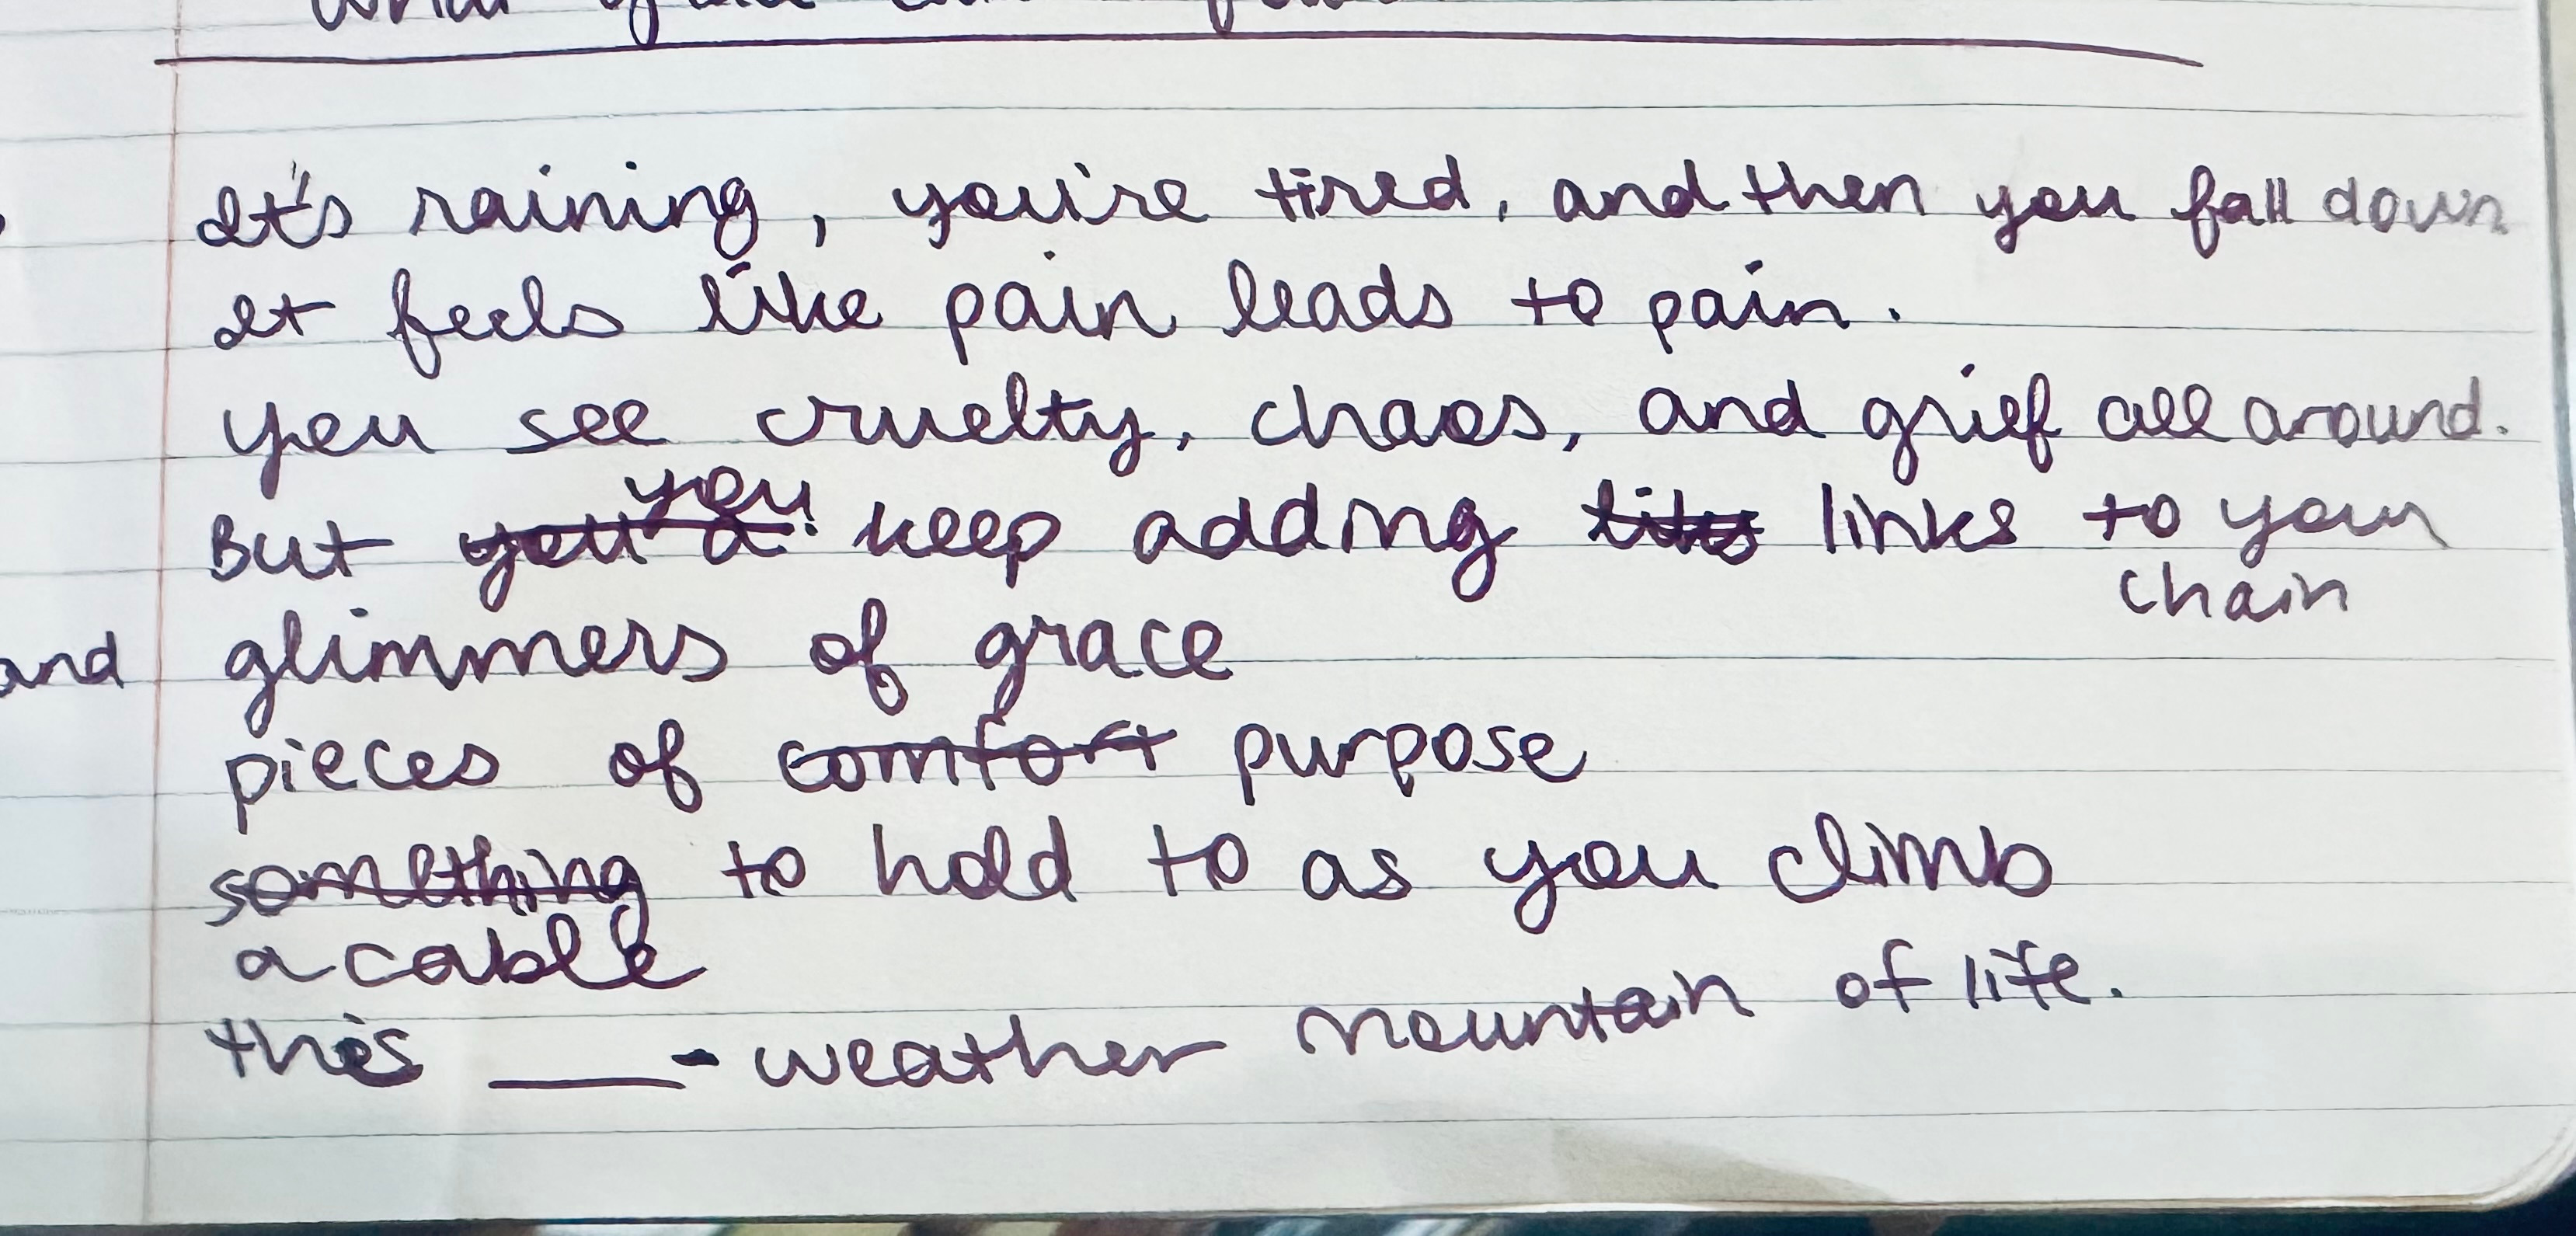 It's raining, you're tired, and then you fall down
It feels like pain leads to pain.
you see cruelty, chaos, and grief all around.
But you keep adding links to your
chain
and glimmers of grace
pieces of comfort purpose
something to hold to as you climb
a cable
this ___-weather mountain of life.